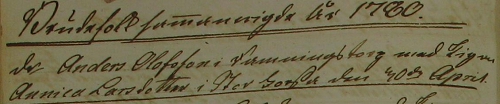 Brudefolk sammanvigde År 1780.
dr Anders Olofson i Ramningstorp med Pigan
Annica Larsdotter i Stor den 30de April